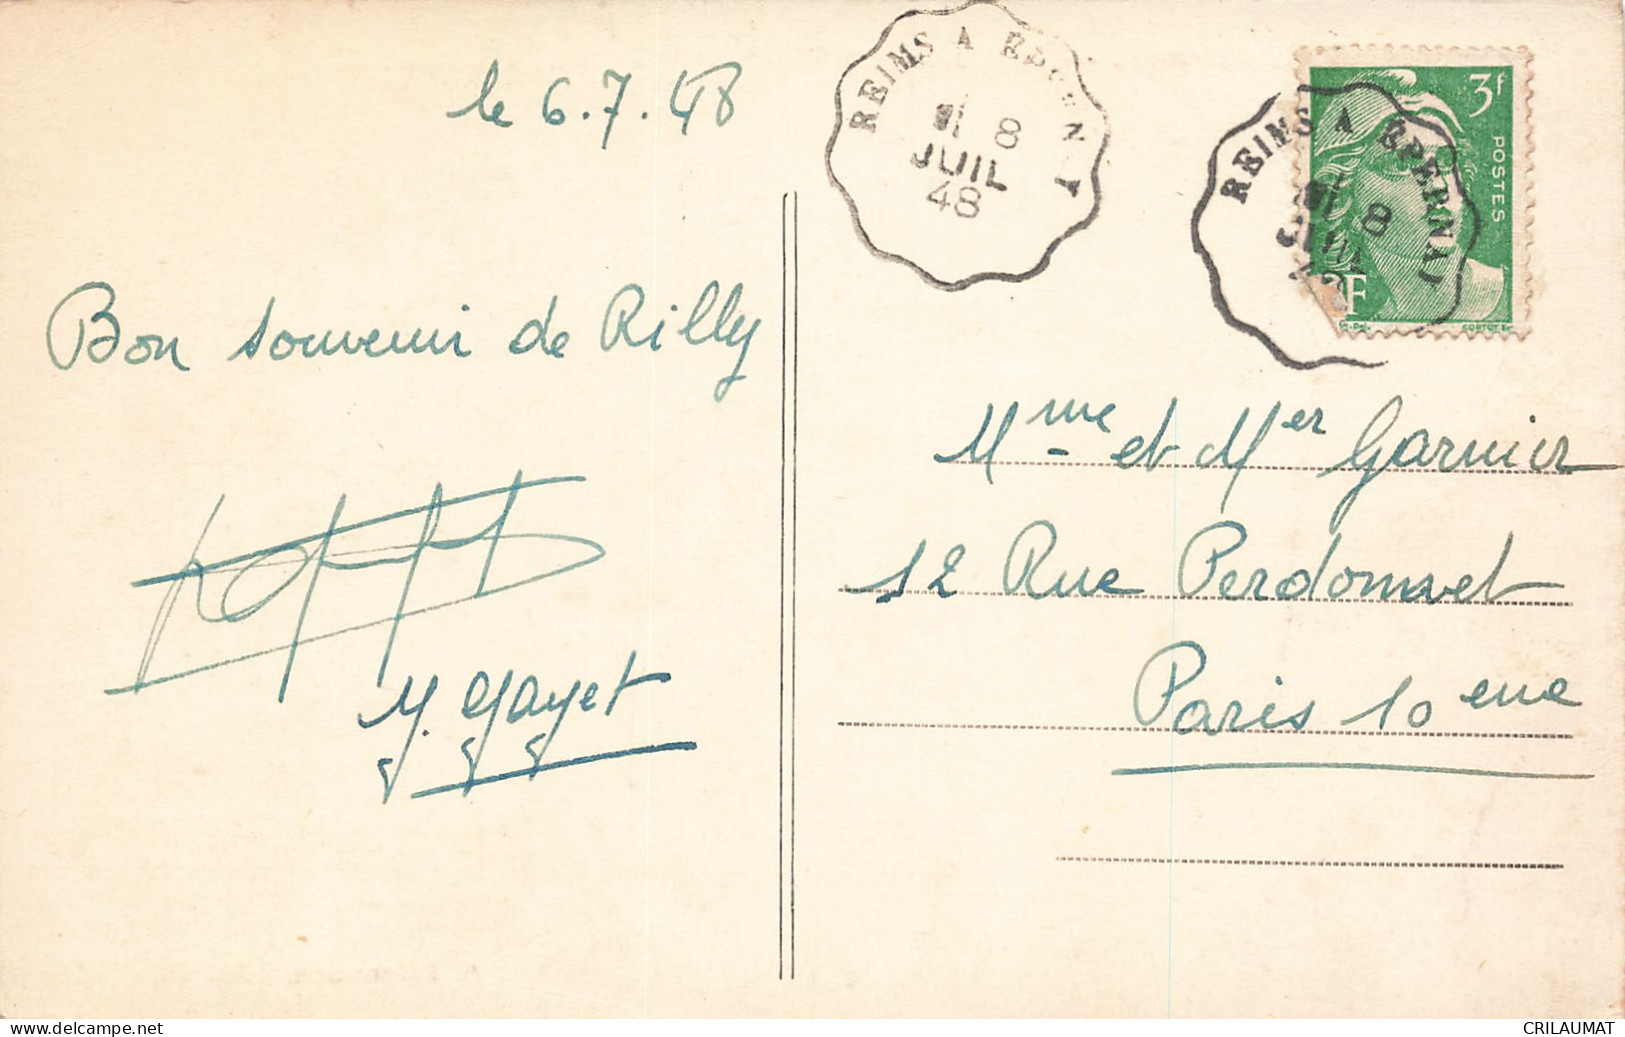 le 6.7.48
Bon souvenir de Rilly
M. Gayet
REIMS A EPERNAY
8
JUIL
48
REIMS A EPERNAY
8
JUIL
3f
POSTES
RF
Mme et Mer Garnier
12 Rue Perdonnet
Paris 10 eme
www.delcampe.net
CRILAUMAT